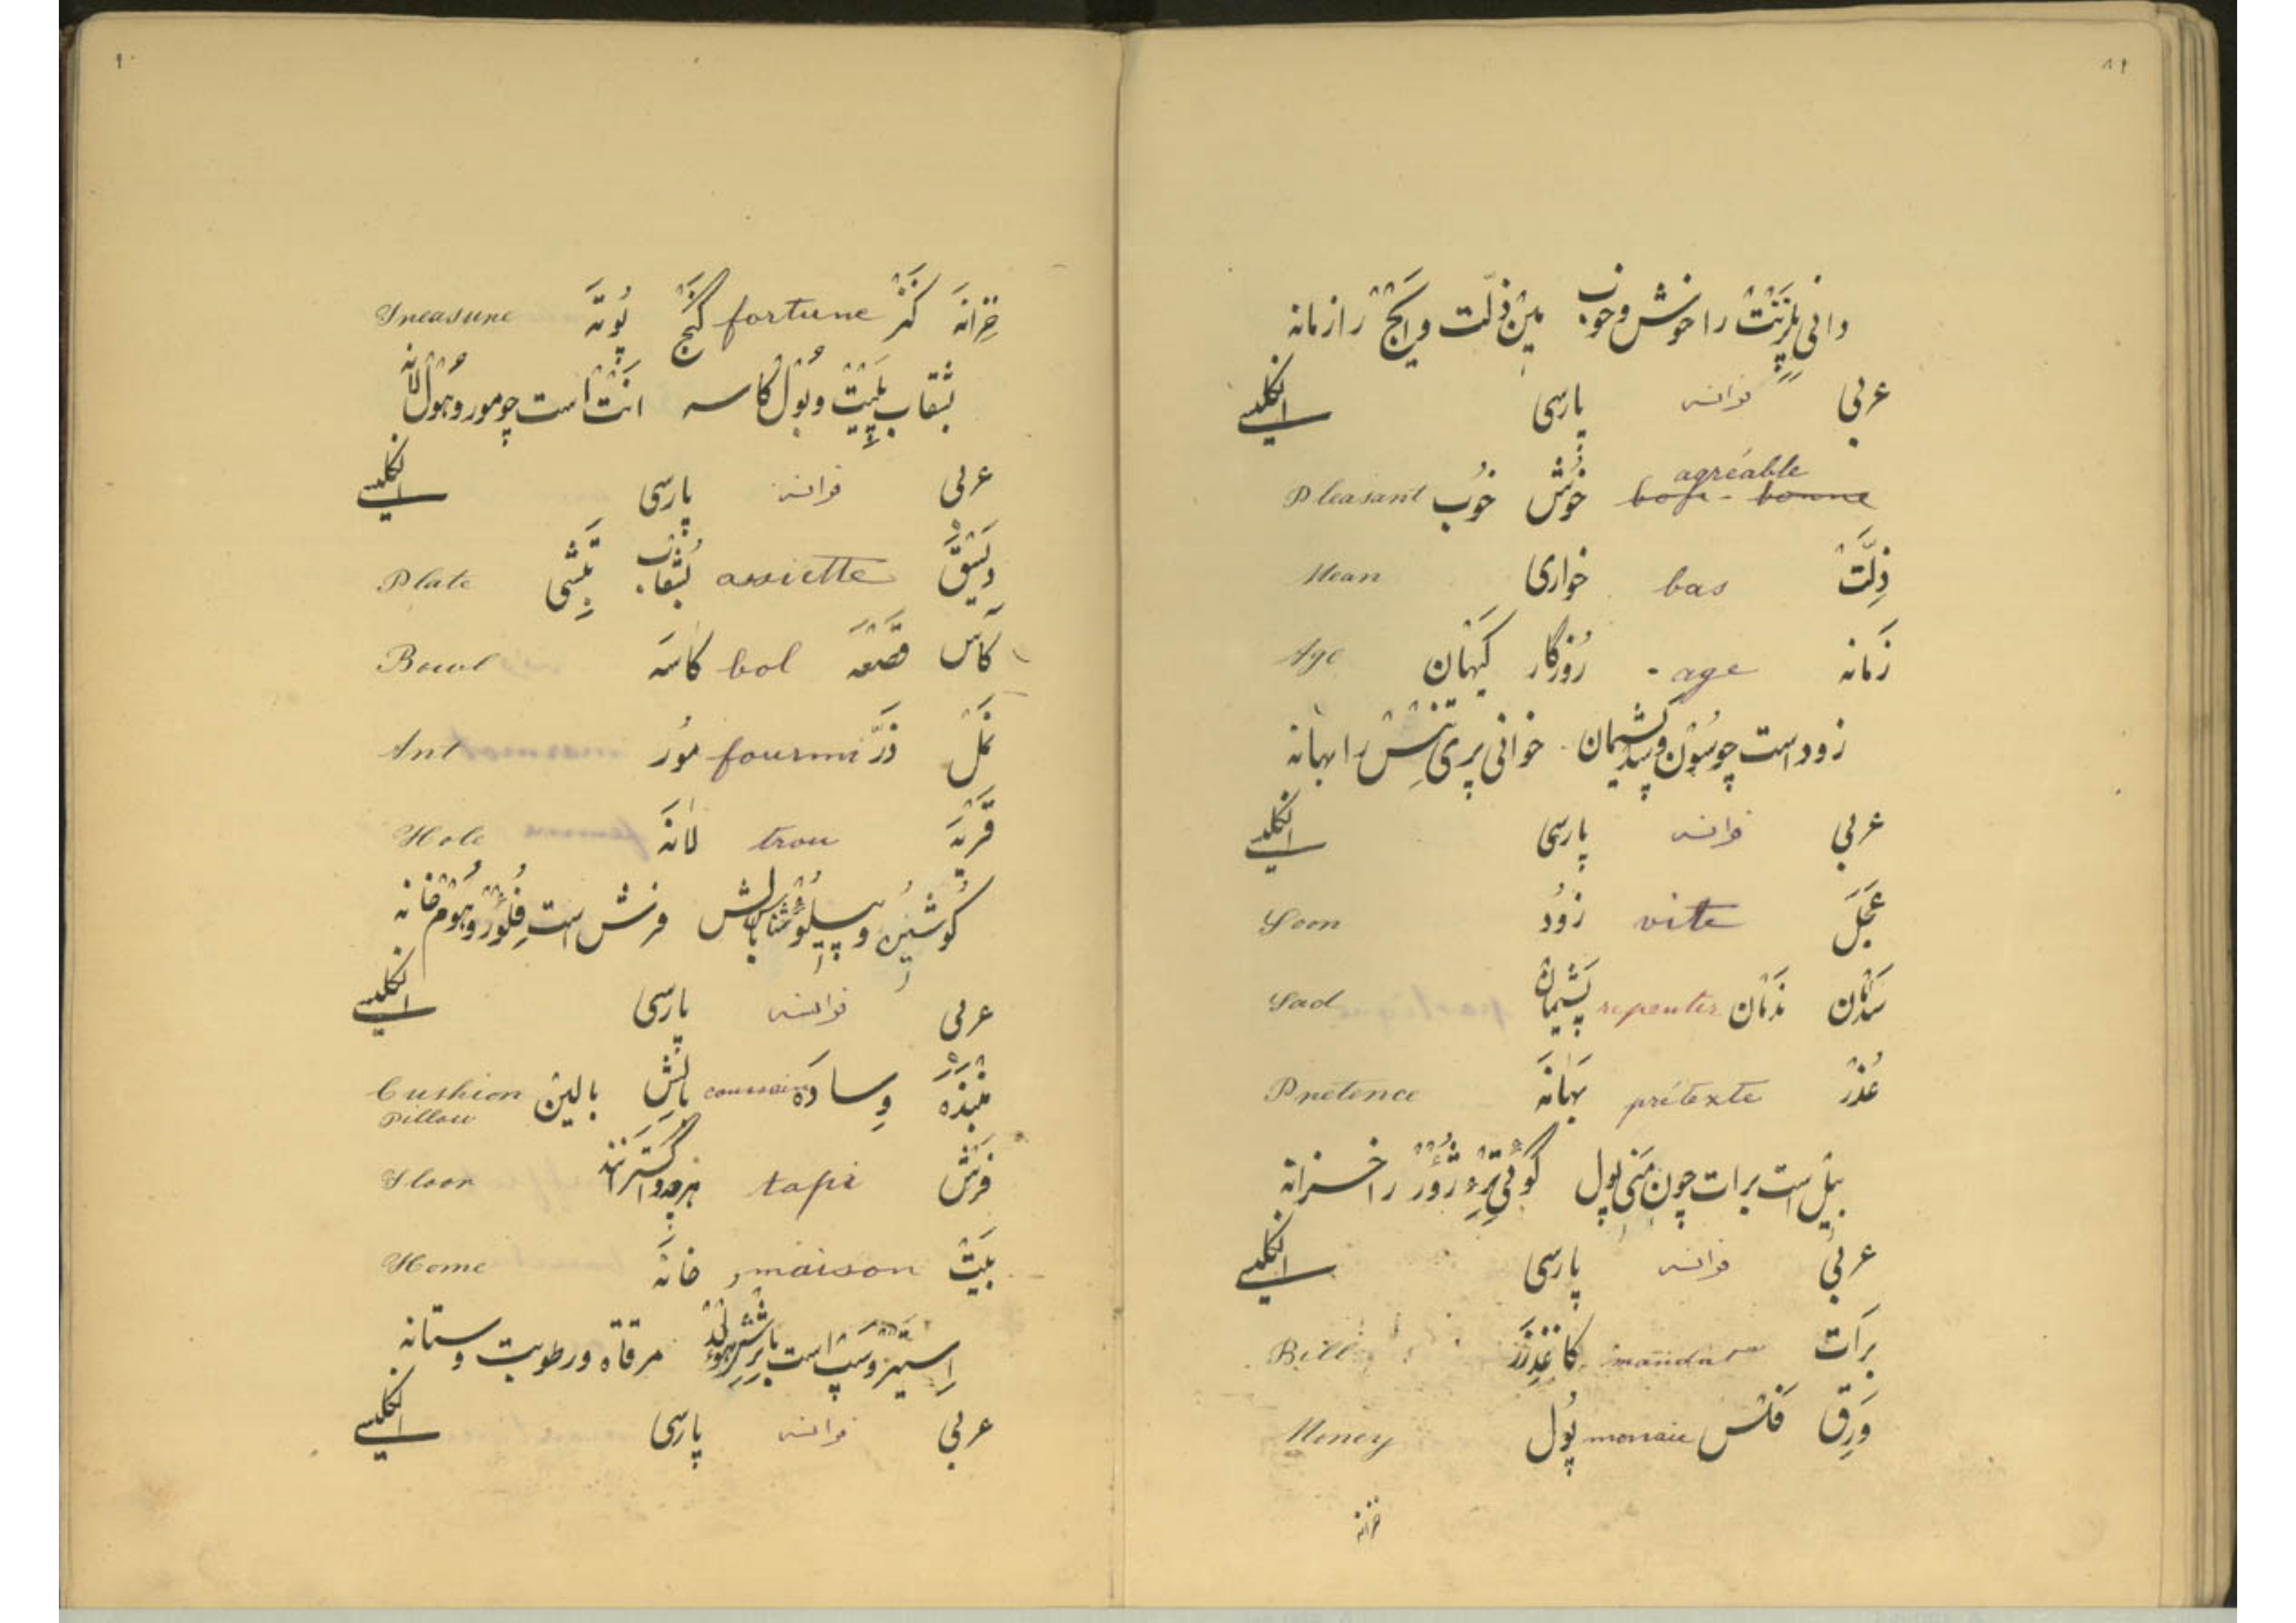 دانی پلزنت را خوش و خوب مین ذلت و ایج را زمانه
عربی فرانسه پارسی انگلیسی
agréable
bon - bonne خوش خوب Pleasant
ذِلَّت bas خواری Mean
زَمانه age رُوزگار کَیهان Age
زود است چو سُون و سد پشیمان خوانی پری تنس را بهانه
عربی فرانسه پارسی انگلیسی
عَجَل vite زُود Soon
سَدْمان نَدْمان repentir پَشیمان Sad
عُذْر prétexte بَهانَه Pretence
بیل است برات چون مَنی پول گوئی را خزانه
عربی فرانسه پارسی انگلیسی
بَرَات mandat کاغذ زَر Bill
وَرِق فَلْس monnaie پُول Money
خزانه
خِزانَه کَنْز fortune گَنْج پُوتَه Treasure
بشقاب پلیت و بُول کاسه انت است چو مور و هُول لانه
عربی فرانسه پارسی انگلیسی
assiette بُشْقاب Plate
کَاس قَصْعَه bol کاسَه Bowl
نَمْل ذَرّ fourmi مُور Ant
قَرْیَة trou لانَه Hole
کوشین و پیلو بالش فرش است فلور و هُوم خانه
عربی فرانسه پارسی انگلیسی
وِسادَه coussin بالِش بالین Cushion
Pillow
فَرْش tapi هرچه گسترانند Floor
بَیْت maison خانَه Home
مرقاة و رطوبت و ستانه
عربی فرانسه پارسی انگلیسی